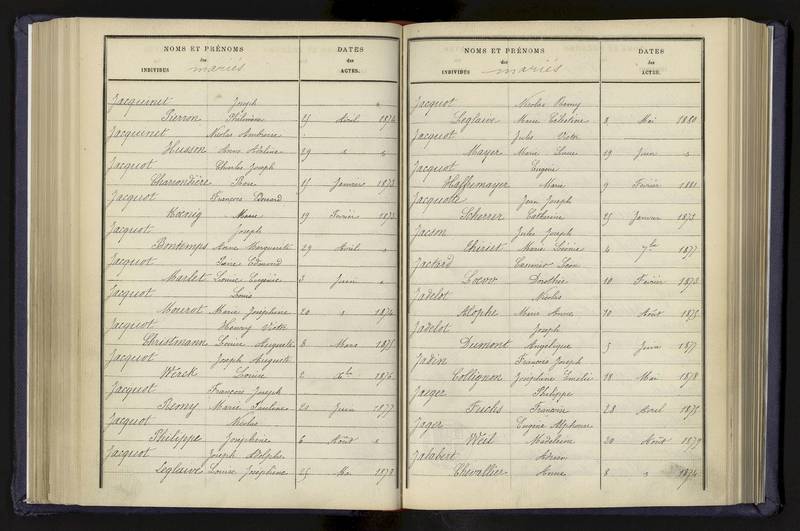 NOMS ET PRÉNOMS
des
INDIVIDUS mariés
DATES
des
ACTES.
Jacquinet Joseph
Pierron Philomène 25 Avril 1874
Jacquinet Nicolas Ambroise
Husson Anne Adeline 29
Jacquot Charles Joseph
Charrondière Rose 15 Janvier 1873
Jacquot François Edouard
Koenig Marie 19 Février 1873
Jacquot Joseph
Bontemps Anne Marguerite 29 Avril "
Jacquot Edmond
Marlet Louise Eugénie 3 Juin "
Jacquot Louis
Mourot Marie Joséphine 20 " 1874
Jacquot Henry Victor
Christmann Louise Auguste 8 Mars 1875
Jacquot Joseph Auguste
Wérck Louise 2 1876
Jacquot François Joseph
Remy Marie Pauline 20 Juin 1877
Jacquot Nicolas
Philippe Joséphine 6 Août "
Jacquot Joseph Adolphe
Leglaive Louise Joséphine 25 Mai 1878
NOMS ET PRÉNOMS
des
INDIVIDUS mariés
DATES
des
ACTES.
Jacquot Nicolas Remy
Leglaive Marie Célestine 8 Mai 1880
Jacquot Jules Victor
Mayer Marie 19 Juin "
Jacquot Eugène
Haffnmayer Marie 9 Février 1881
Jacquotte Jean Joseph
Scherrer Catherine 25 Janvier 1873
Jacson Jules Joseph
Thiriet Marie 4 7bre 1877
Jactard Casimir Léon
Loeow Dorothée 10 Février 1873
Jadelot Nicolas
Klophe Marie Anne 10 Août 1875
Jadelot Joseph
Dumont Angélique 5 Juin 1877
Jadin François Joseph
Collignon Joséphine Emelie 18 Mai 1878
Jaeger Philippe
Fuchs 28 Avril 1875
Jager Eugène Alphonse
Weil Madeleine 20 Août 1879
Jalabert Adrien
Chevallier Anna 8 " 1874